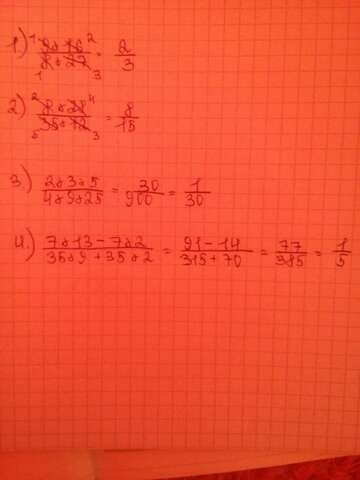 1.) ¹9*16² / ₁8*27₃ = 2/3
2) ²8*28⁴ / ₅35*12₃ = 8/15
3) 2*3*5 / 4*9*25 = 30/900 = 1/30
4.) 7*13-7*2 / 35*9+35*2 = 91-14 / 315+70 = 77/385 = 1/5